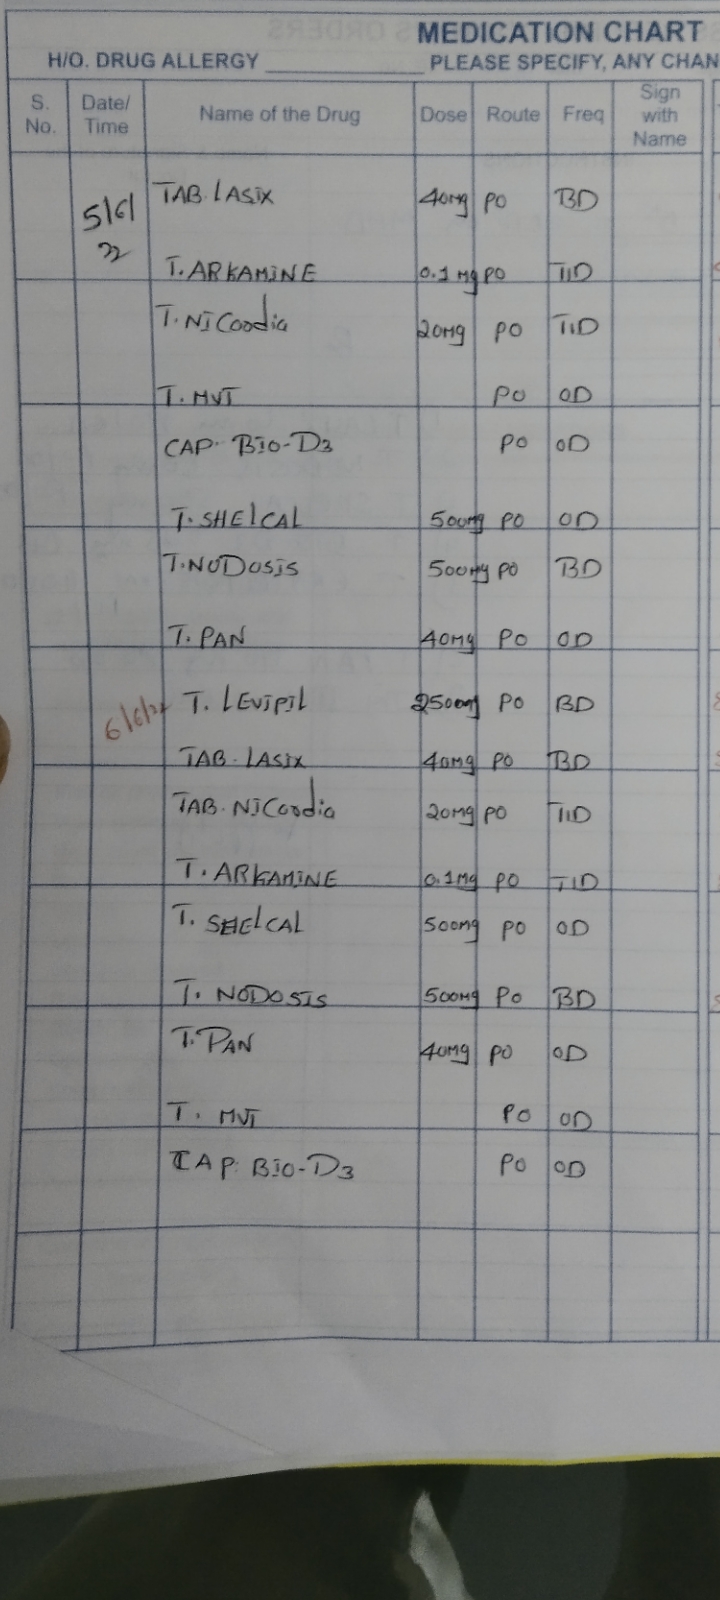 MEDICATION CHART
H/O. DRUG ALLERGY ____________ PLEASE SPECIFY, ANY CHAN
S. No. Date/ Time Name of the Drug Dose Route Freq Sign with Name
5/6/22 TAB. LASIX 40mg PO BD
T. ARKAMINE 0.1 mg PO TID
T. NICardia 20mg PO TID
T. MVT PO OD
CAP. BIO-D3 PO OD
T. SHELCAL 500mg PO OD
T. NODOSIS 500mg PO BD
T. PAN 40mg PO OD
6/6/22 T. LEVIPIL PO BD
TAB. LASIX 40mg PO BD
TAB. NICardia 20mg PO TID
T. ARKAMINE 0.1mg PO TID
T. SHELCAL 500mg PO OD
T. NODOSIS 500mg PO BD
T. PAN 40mg PO OD
T. MVT PO OD
CAP. BIO-D3 PO OD